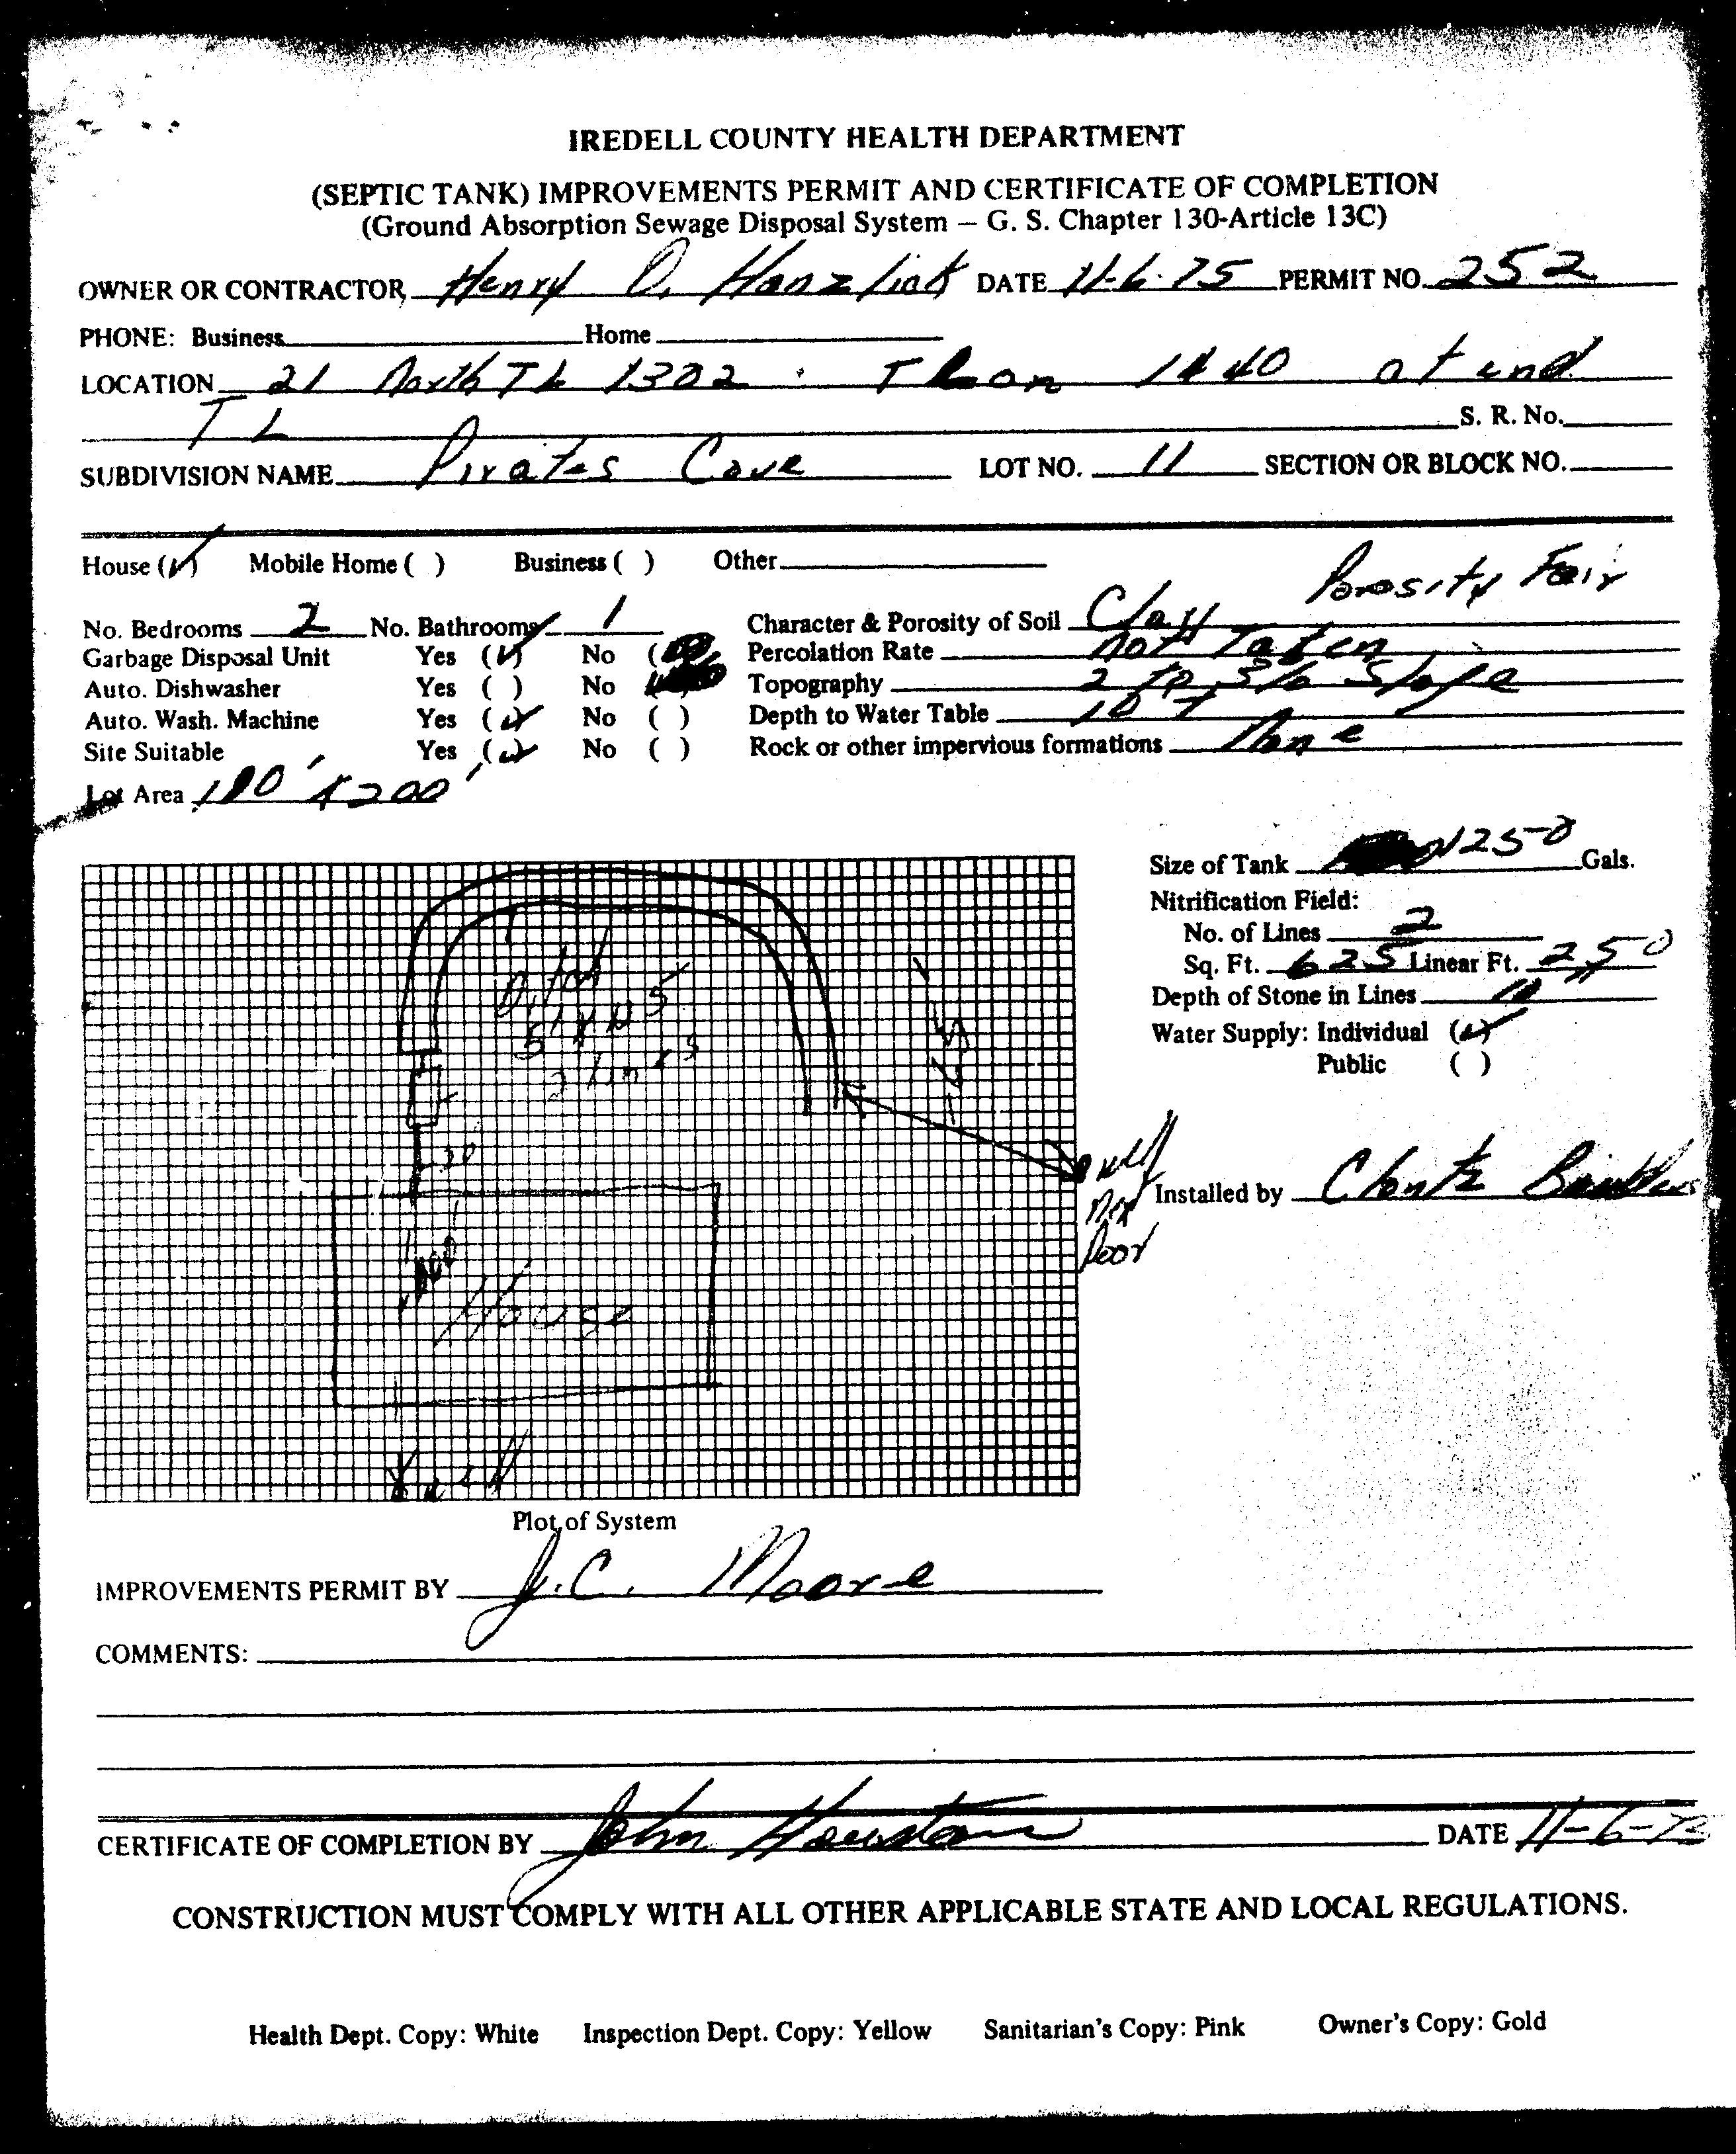 IREDELL COUNTY HEALTH DEPARTMENT
(SEPTIC TANK) IMPROVEMENTS PERMIT AND CERTIFICATE OF COMPLETION
(Ground Absorption Sewage Disposal System — G. S. Chapter 130-Article 13C)
OWNER OR CONTRACTOR Henry D. DATE 11-6-75 PERMIT NO. 252
PHONE: Business Home
LOCATION 21 North TL 1302 on 1440 at end
TL S. R. No.
SUBDIVISION NAME Pirates Cove LOT NO. 11 SECTION OR BLOCK NO.
House (✓) Mobile Home ( ) Business ( ) Other Porosity Fair
No. Bedrooms 2 No. Bathrooms 1 Character & Porosity of Soil Clay
Garbage Disposal Unit Yes (✓) No ( Percolation Rate not Taken
Auto. Dishwasher Yes ( ) No Topography 2 to 5% Slope
Auto. Wash. Machine Yes (✓) No ( ) Depth to Water Table 10
Site Suitable Yes (✓) No ( ) Rock or other impervious formations None
Lot Area 100' x 200'
Size of Tank 1250 Gals.
Nitrification Field:
No. of Lines 2
Sq. Ft. 625 Linear Ft. 250
Depth of Stone in Lines
Water Supply: Individual (✓)
Public ( )
2 Lines
well
next
Door
Installed by Clontz
House
well
Plot of System
IMPROVEMENTS PERMIT BY J.C. Moore
COMMENTS:
CERTIFICATE OF COMPLETION BY John Houston DATE 11-6-75
CONSTRUCTION MUST COMPLY WITH ALL OTHER APPLICABLE STATE AND LOCAL REGULATIONS.
Health Dept. Copy: White Inspection Dept. Copy: Yellow Sanitarian's Copy: Pink Owner's Copy: Gold